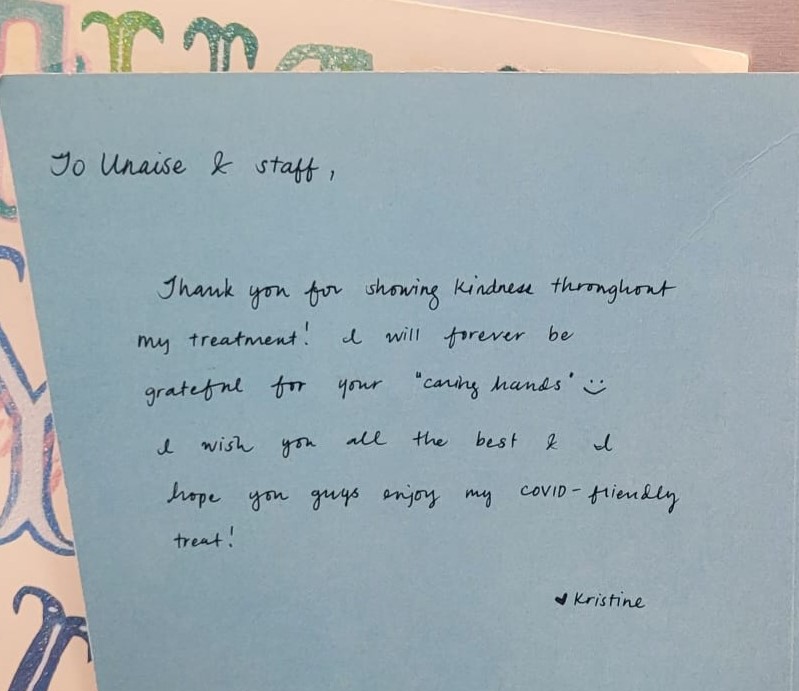 To Unaise & staff,
Thank you for showing kindness throughout
my treatment! I will forever be
grateful for your "caring hands" :)
I wish you all the best & I
hope you guys enjoy my COVID-friendly
treat!
♥ Kristine